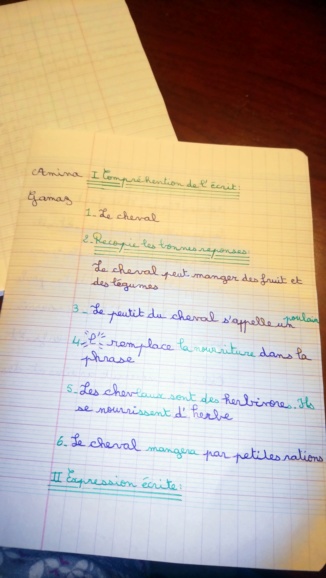 Amina I Compréhention de l'écrit:
Gamaz
1. Le cheval
2. Recopie les bonnes reponses:
Le cheval peut manger des fruit et
des légumes
3. Le peutit du cheval s'appelle un poulain
4. "l'" remplace la nourriture dans la
phrase
5. Les cheviaux sont des herbivore. Ils
se nourrissent d'herbe
6. Le cheval mangera par petites rations
II Expression écrite: